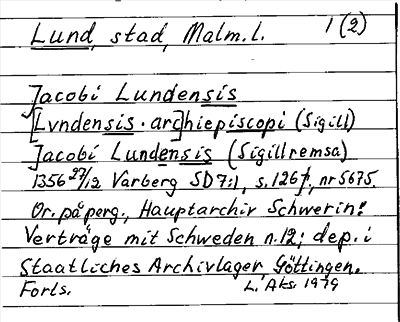 Lund, stad, Malm.l. 1(2)
Jacobi Lundensis
[Lvndensis · arc]hiepiscopi (Sigill)
Jacobi Lundensis (Sigillremsa)
1356 27/12 Varberg SD7:1, s.126f, nr 5675.
Or. på perg., Hauptarchiv Schwerin:
Verträge mit Schweden n.12; dep. i
Staatliches Archivlager, Göttingen.
Forts. L. Aks. 1979